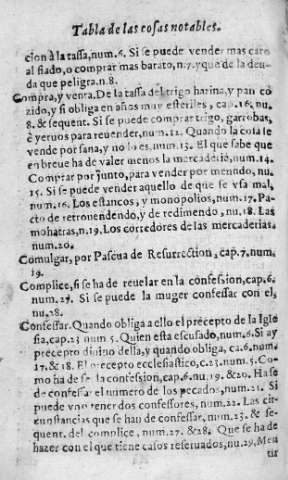 Tabla de las cosas notables.
cion à la tassa, num. 6. Si se puede vender mas caro
al fiado, o comprar mas barato, n. 7. y que de la deu-
da que peligra. n. 8.
Compra, y venta. De la tassa del trigo harina, y pan co
zido, y si obliga en años muy esteriles, cap. 16. nu.
8. & sequent. Si se puede comprar trigo, garrobas,
è yeruos para reuender, num. 12. Quando la cosa se
vende por sana, y no lo es. num. 13. El que sabe que
en breue ha de valer menos la mercaderia, num. 14.
Comprar por junto, para vender por menudo, nu.
15. Si se puede vender aquello de que se vsa mal,
num. 16. Los estancos, y monopolios, num. 17. Pa-
cto de retrouendendo, y de redimendo, nu. 18. Las
mohatras, n. 19. Los corredores de las mercaderias.
num. 20.
Comulgar, por Pascua de Resurrection, cap. 7. num.
19.
Complice, si se ha de reuelar en la confession, cap. 6.
num. 27. Si se puede la muger confessar con el,
nu. 28.
Confessar. Quando obliga a ello el precepto de la Igle
sia, cap. 23 num 5. Quien esta escusado, num. 6. Si ay
precepto diuino della, y quando obliga, ca. 6. num.
17. & 18. El precepto ecclesiastico, c. 23. num. 5. Co-
mo ha de se la confession, cap. 6. nu. 19. & 20. Ha se
de confessar el numero de los pecados, num. 21. Si
puede vno tener dos confessores, num. 22. Las cir-
cunstancias que se han de confessar, num. 23. & se-
quent. del complice, num. 27. & 28. Que se ha de
hazer con el que tiene casos reseruados, nu. 29. Men
tir